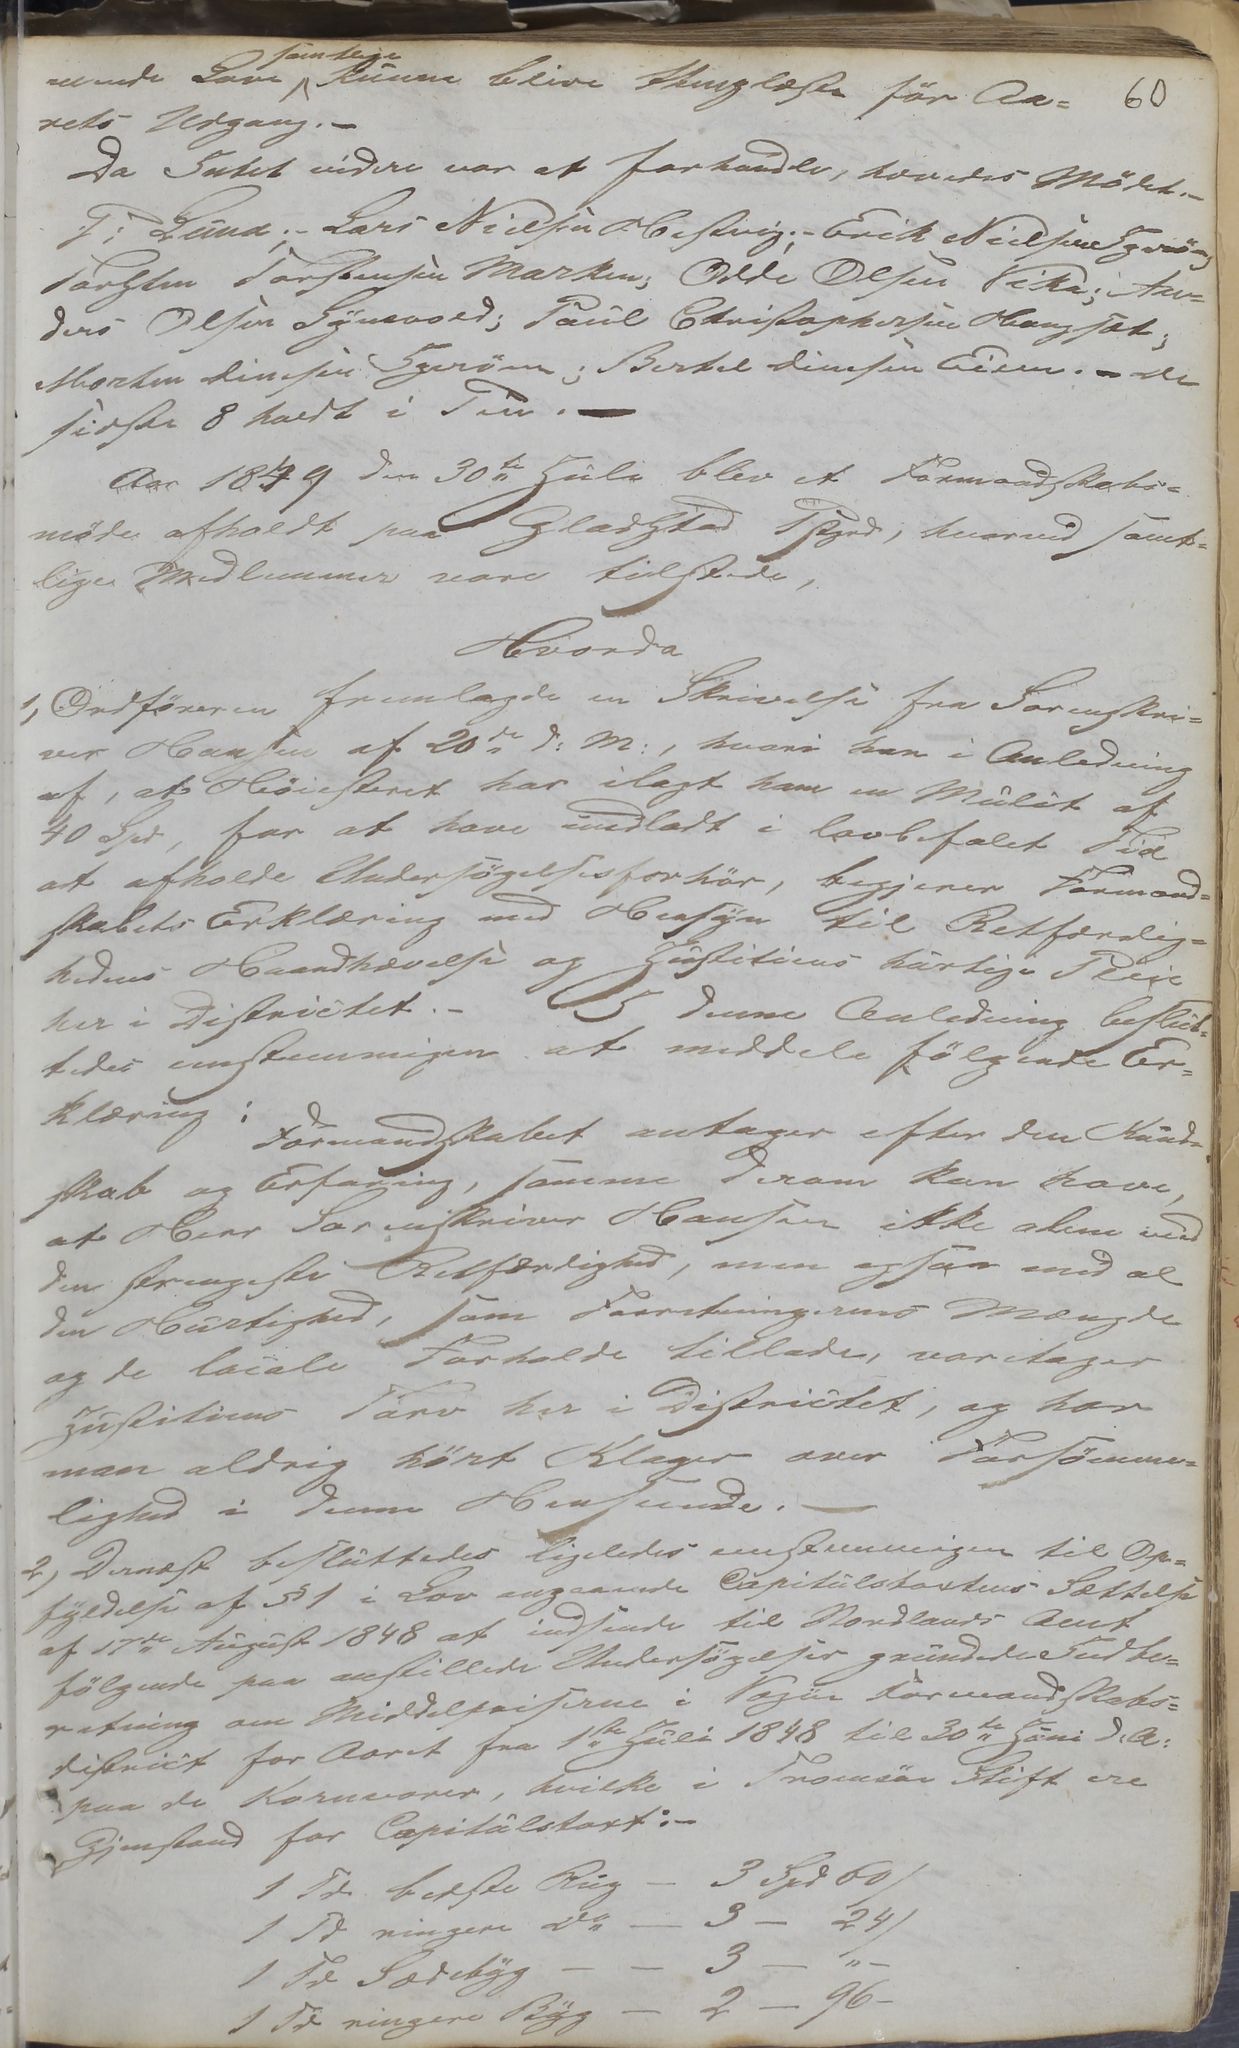 nende Love samtlige kunne blive thinglæste før Aa= 60
rets Udgang. -
Da Intet videre var at forhandle, hævedes Mødet. -
T: Lund; - Lars Nielsen Hestvig; - Erik Nielsen Igerøen;
Torsten Torstensen Marken; Odde Olsen Vika; An=
ders Olsen Sÿnesvold; Paul Christophersen Hongset;
Morten Dinesen Igerøen; Bertel Dinesen Eisen. - de
sidste 8 holdt i Pen. -
Aar 1849 den 30te Juli blev et Formandskabs=
møde afholdt paa Gladstad Pgrd, hvorved samt=
lige Medlemmer vare tilstede,
Hvorda
1, Ordføreren fremlagde en Skrivelse fra Sorenskri=
ver Hansen af 20de d: M:, hvori han i Anledning
af, at Høiesteret har ilagt ham en Mulct af
40 Spd, for at have undladt i lovbefalet Tid
at afholde Undersøgelsesforhør, begjerer Formand=
skabets Erklæring med Hensÿn til Retfærdig=
hedens Haandhævelse og Justitiens hurtige Pleie
her i Districtet. - I denne Anledning beslut=
tedes enstemmigen at meddele følgende Er=
klæring:
Formandskabet antager efter den Kund=
skab og Erfaring, samme derom kan have,
at Herr Sorenskriver Hansen ikke alene med
den strengeste Retfærdighed, men ogsaa med al
den Hurtighed, som Forretningernes Mængde
og de locale Forholde tillade, varetager
Justitiens Tarv her i Districtet, og har
man aldrig hört Klager over Forsømme=
lighed i denne Henseende. -
2, Dernæst besluttedes ligeledes enstemmigen til Op=
fyldelse af § 1 i Lov angaaende Capitulstaxtens Sættelse
af 17de August 1848 at indsende til Nordlands Amt
følgende paa anstillede Undersøgelser grundede Indbe=
retning om Middelpriserne i Vegøe Formandskabs=
district for Aaret fra 1ste Juli 1848 til 30te Juni d: A:
paa de Kornvarer, hvilke i Tromsøe Stift ere
Gjenstand for Capitulstaxt: -
1 Td bedste Rug - 3 Spd 60/
1 Td ringere do - 3 - 24/
1 Td Sædebÿg - - 3 - " -
1 Td ringere Bÿg - 2 - 96 -